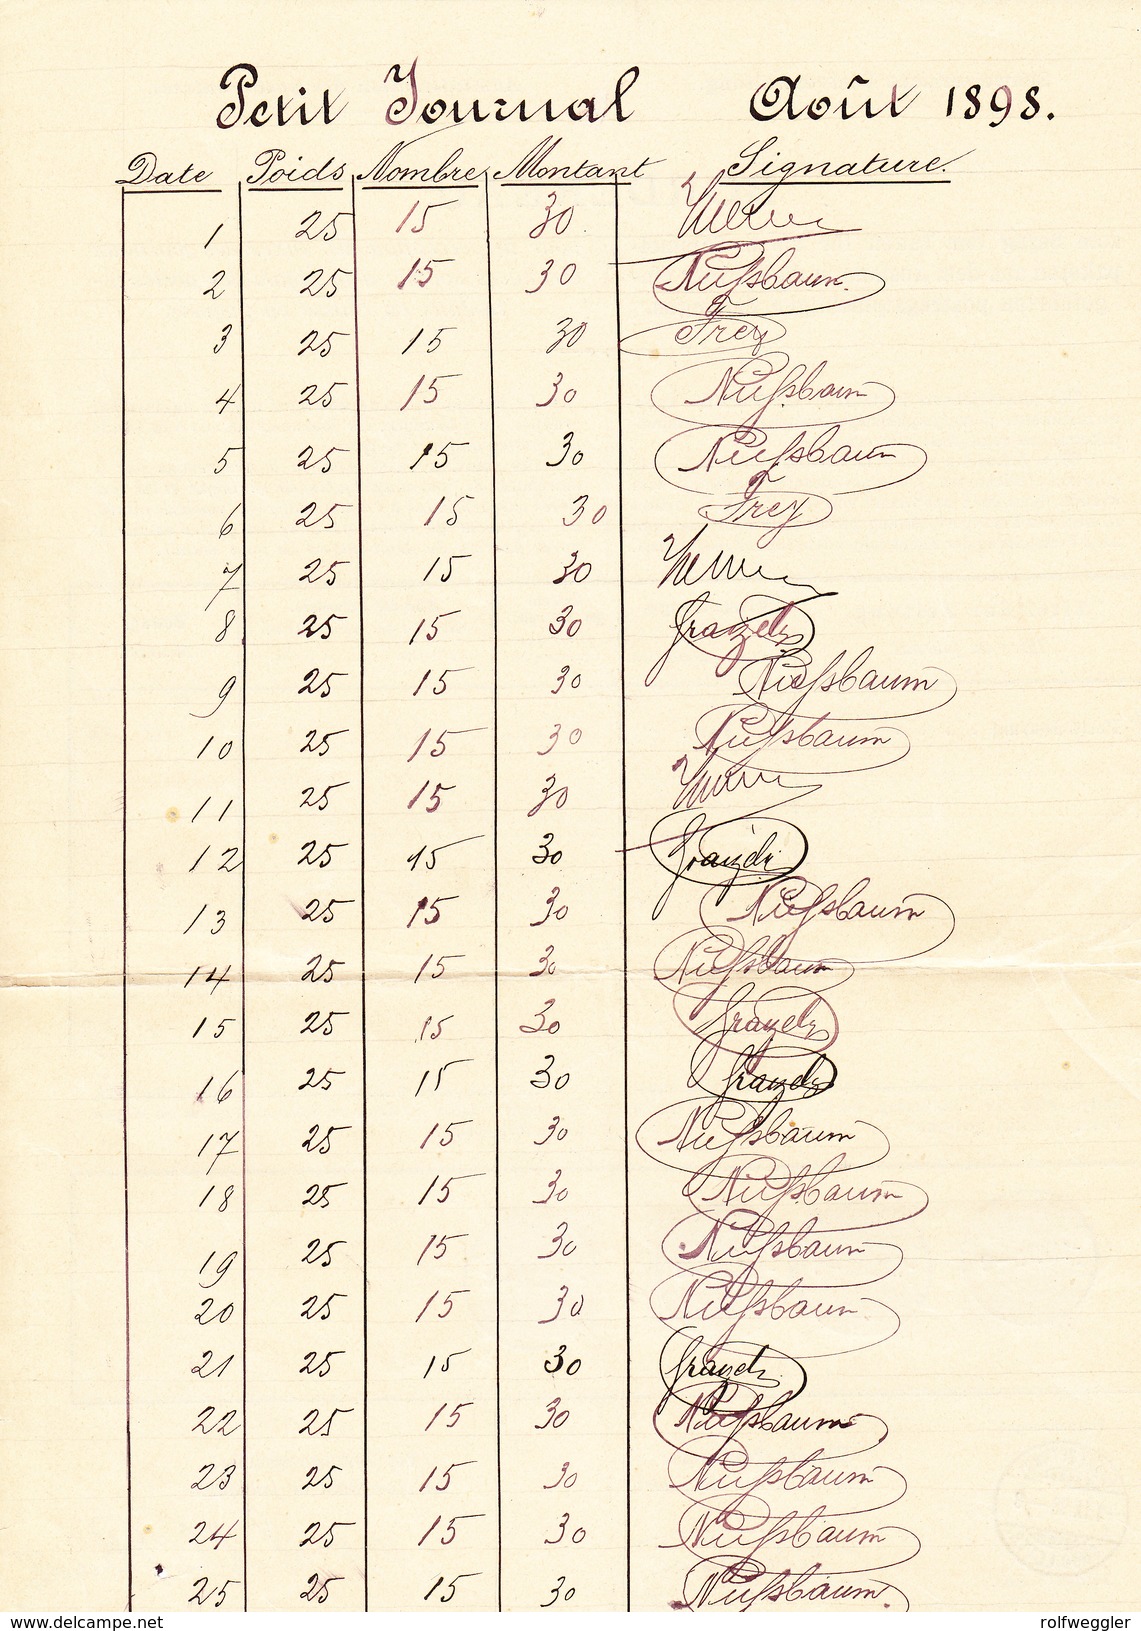 Petit Journal Août 1898.
Date Poids Nombre Montant Signature.
1 25 15 30
2 25 15 30 Nußbaum.
3 25 15 30 Frey
4 25 15 30 Nußbaum
5 25 15 30 Nußbaum
6 25 15 30 Frey
7 25 15 30
8 25 15 30
9 25 15 30 Nußbaum
10 25 15 30 Nußbaum
11 25 15 30
12 25 15 30
13 25 15 30 Nußbaum
14 25 15 30 Nußbaum
15 25 15 30
16 25 15 30
17 25 15 30 Nußbaum
18 25 15 30 Nußbaum
19 25 15 30 Nußbaum
20 25 15 30 Nußbaum
21 25 15 30
22 25 15 30 Nußbaum
23 25 15 30 Nußbaum
24 25 15 30 Nußbaum
25 25 15 30 Nußbaum.
www.delcampe.net rolfweggler